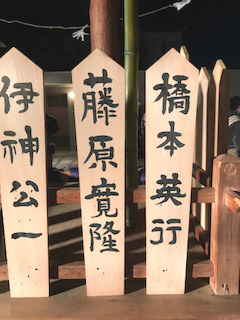 橋本英行
藤原寛隆
伊神公一